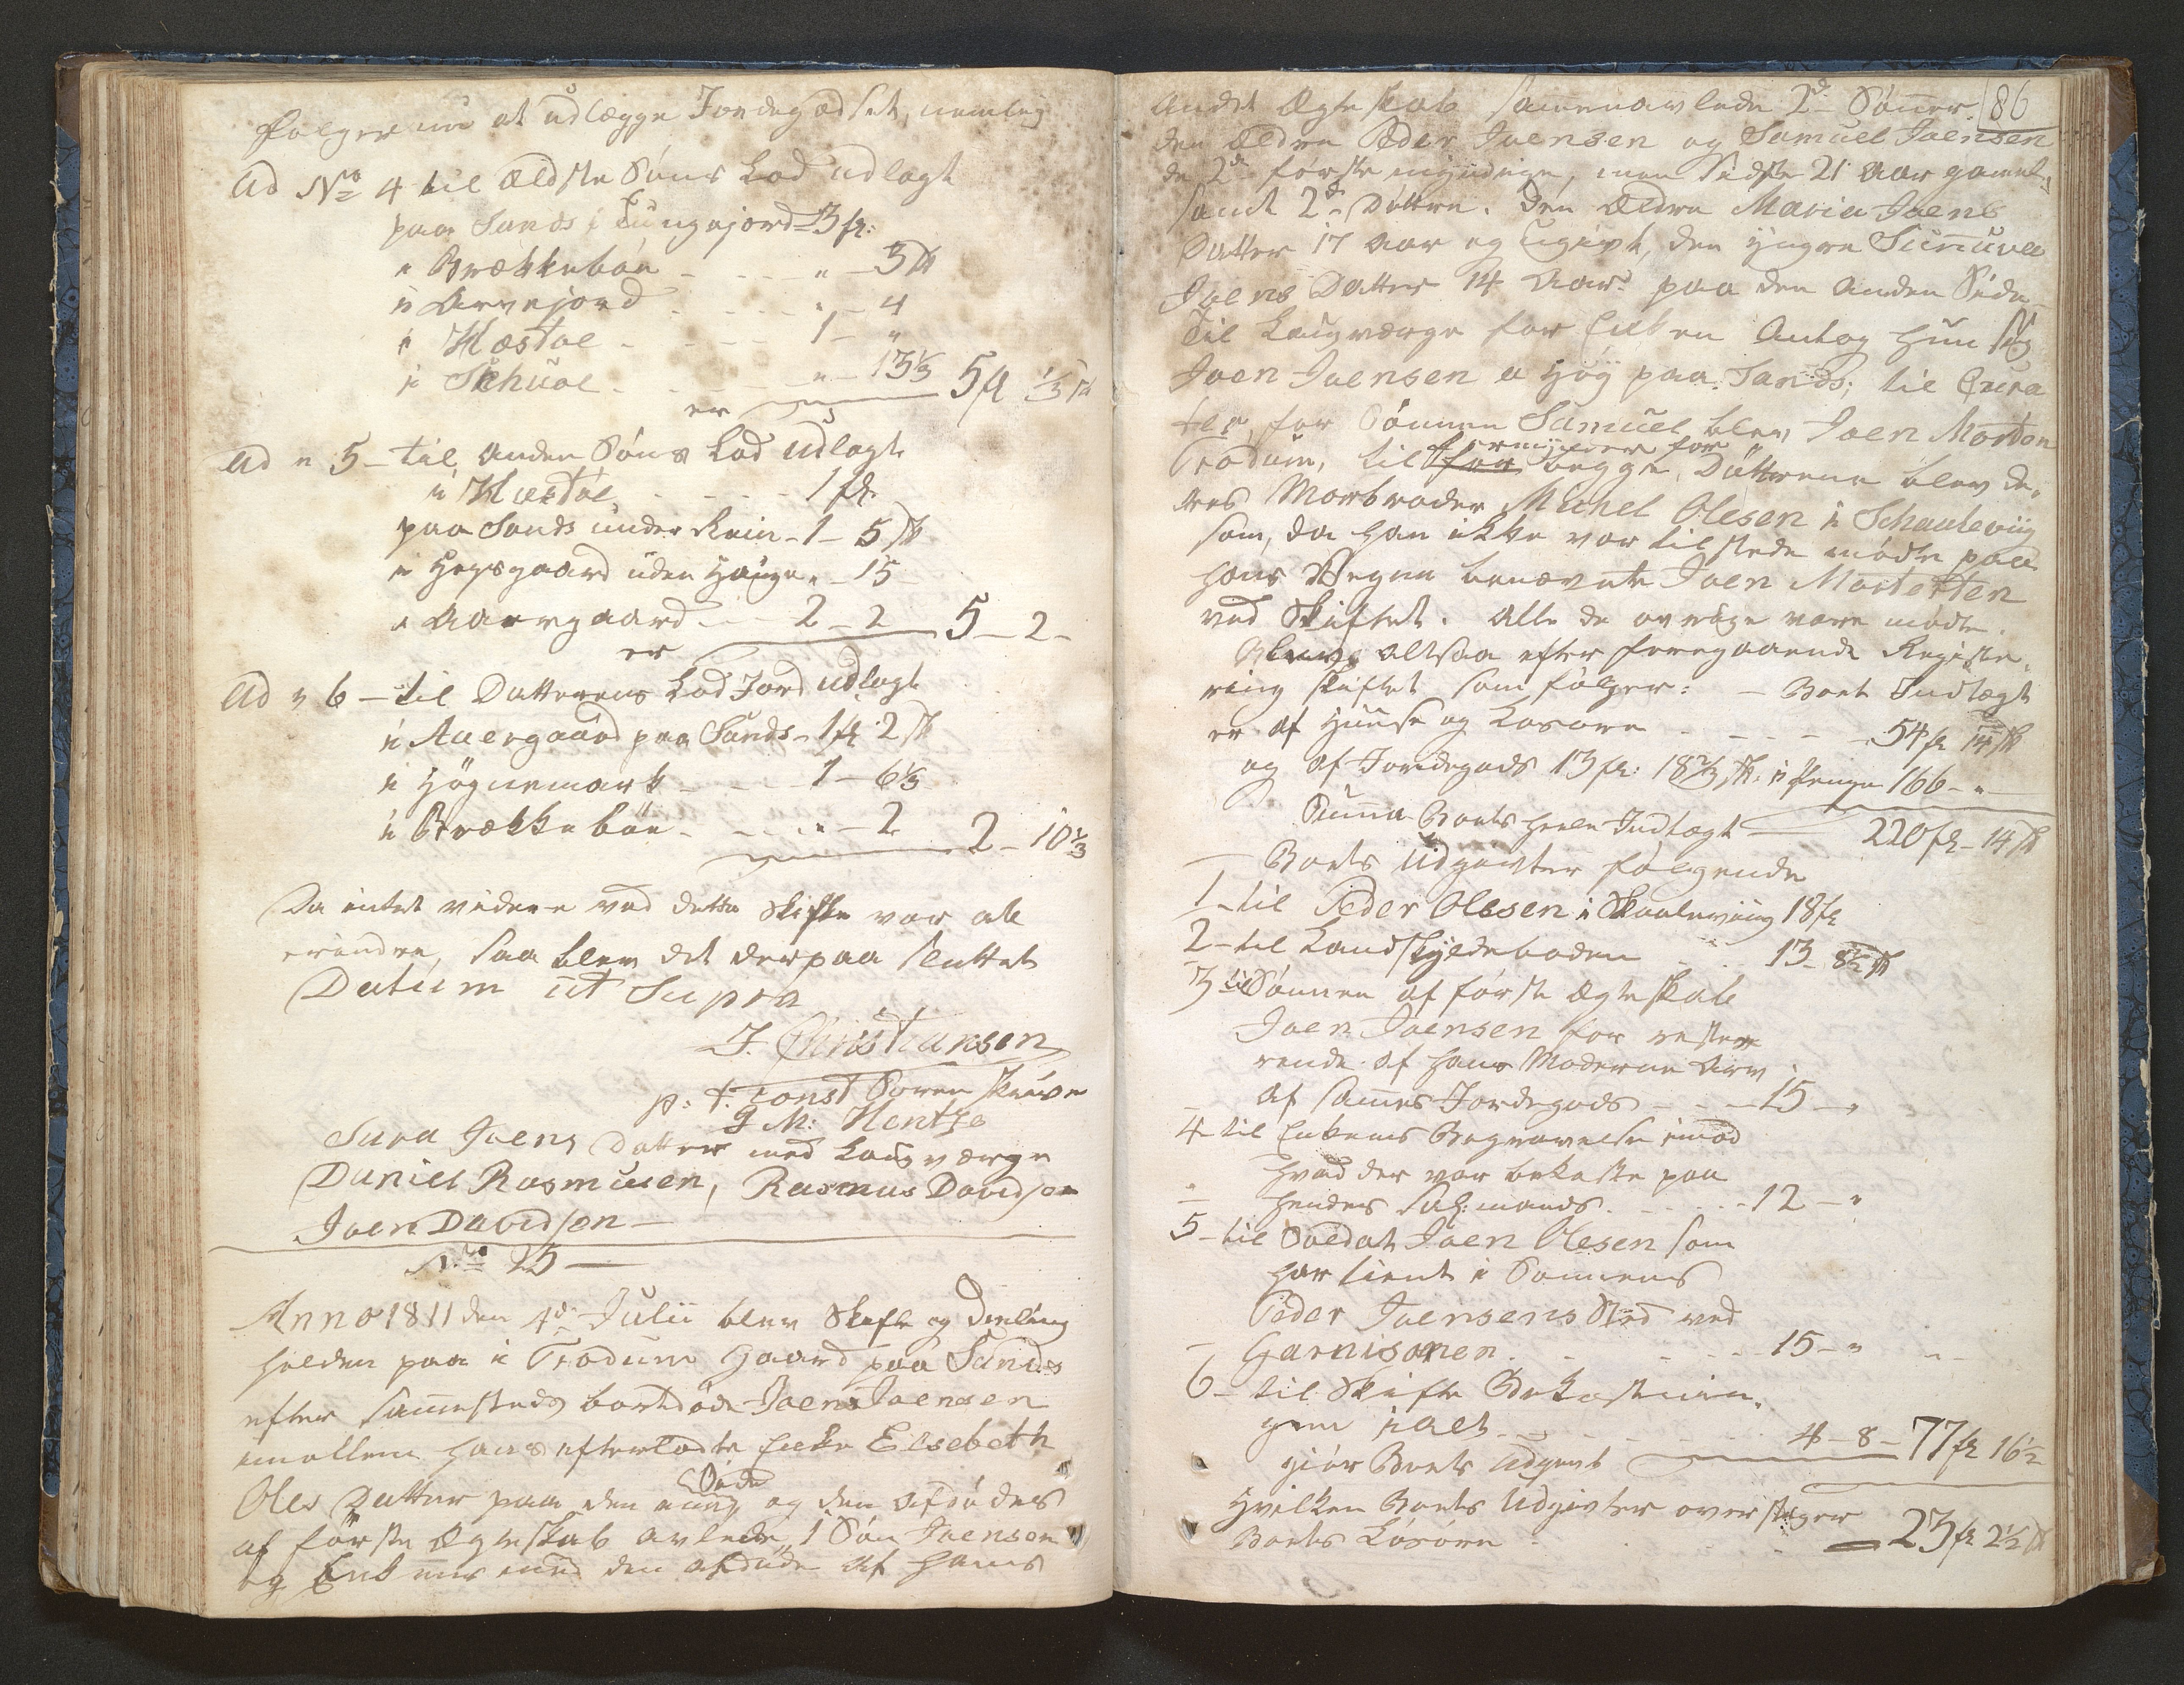 følger nu at udlægge Jordegodset, nemlig
Ad No 4 til Ældste Søns Lod udlagt
paa Sands i Tungejord 3 fr:
i Brekkebøn - - - " - 3 sk
i Arvejord - - - " - 4
i Hestoe - - - 1 - "
i Skhuoe - - - " - 13 1/3
er 5 fl 1/3 sk
Ad " 5 - til Anden Søns Lod udlagt
i Hestøe - - - 1 fl.
paa Sands under Rein - 1 - 5 sk
i Heysgaard uden Hauge " - 15
i Aaregaard - - 2 - 2
er 5 - 2 -
Ad " 6 - til Datterens Lod Jord udlagt
i Auergaard paa Sands - 1 fl 2 sk
i Høgnemark - - - 1 - 6 1/3
i Brækkebøn - - - " - 2
2 - 10 1/3
Da intet videre ved dette Skifte var at
erindre, saa blev det derpaa sluttet
Datum ut Supra
J. Christiansen
p: t: const Soren skriver
J M: Hentze
Sura Joens Datter med Laugværge
Daniel Rasmusen, Rasmus Davidsen
Joen Davidson -
No 15 -
Anno 1811 den 4de Julii blev Skifte og Deeling
holden paa i Trodum gaard paa Sands
efter sammesteds bortdøde Joen Joensen
imellem hans efterladte Enke Elsebeth
Oles Datter paa den eene Side og den afdødes
af første Ægteskab avlede 1 Søn Joensen
og Enkens med den afdøde af hans
86
andet Ægteskab sammenavlede 2de Sønner.
den Ældre Peder Joensen og Samuel Joensen
de 2de første myndige, men sidste 21 Aar gamel,
samt 2de Døttre. den Ældre Maria Joens
Datter 17 Aar og ugivt, den yngre Sunnuva
Joens Datter 14 Aar paa den anden Side
Til Laugværge for Enken Antog hun sig
Joen Joensen a Høy paa Sands; til Cura
tor for Sønnen Samuel blev Joen Morten
Trodum, til formynder for begge Døttrene blev de-
res Morbroder Michel Olesen i Schaaleviig
som, da han ikke var tilstede mødte paa
hans Vegne benævnte Joen Mortensen
ved Skiftet. Alle de øvrige vare mødte.
Blev altsaa efter foregaaende Registe-
ring skiftet som følger: - Boets Indtægt
er af Huuse og Løsøre - - - 54 fl 14 sk
og af Jordegods 13 fl: 18 2/3 sk: i Penge 166 - "
Summa Boets heele Indtægt 220 fl - 14 sk
Boets Udgivter følgende
1 - til Peder Olesen i Skaaleviig 18 fl
2 - til Landskyldeboden - - 13 - 8 1/2 sk
3 - til Sønnen af første Ægteskab
Joen Joensen for reste-
rende af hans Moderne Arv
af sammes Jordegods - - - 15 - "
4 - til Enkens Begravelse imod
hvad der var bekoste paa
hendes Sal: mands - - - 12 - "
5 - til Soldat Joen Olesen som
har tient i Sønnens
Peder Joensens Sted ved
Garnisonen - - - 15 - "
6 - til Skifte Bekostnin-
gen ialt - - - 4 - 8 -
giør Boets Udgivt 77 fl 16 1/2
Hvilken Boets Udgivter overstiger
Boets Løsøre - - - 23 fl 2 1/2 sk